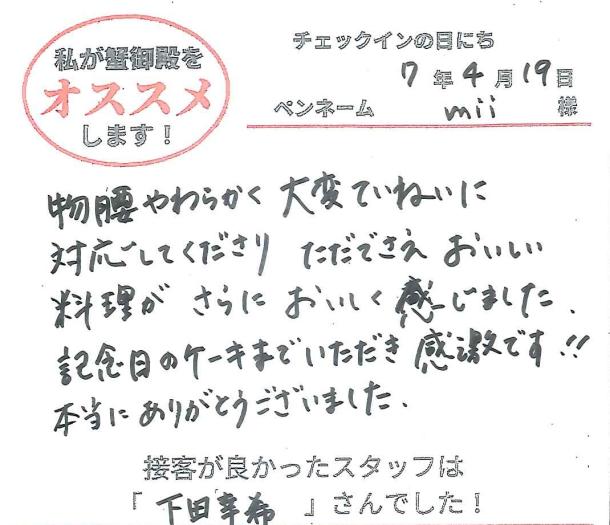 私が蟹御殿を
オススメ
します！
チェックインの日にち
7年4月19日
ペンネーム mii 様
物腰やわらかく 大変ていねいに
対応してくださり ただでさえ おいしい
料理が さらに おいしく 感じました.
記念日のケーキまでいただき 感激です!!
本当に ありがとうございました.
接客が良かったスタッフは
「 下田幸希 」さんでした！